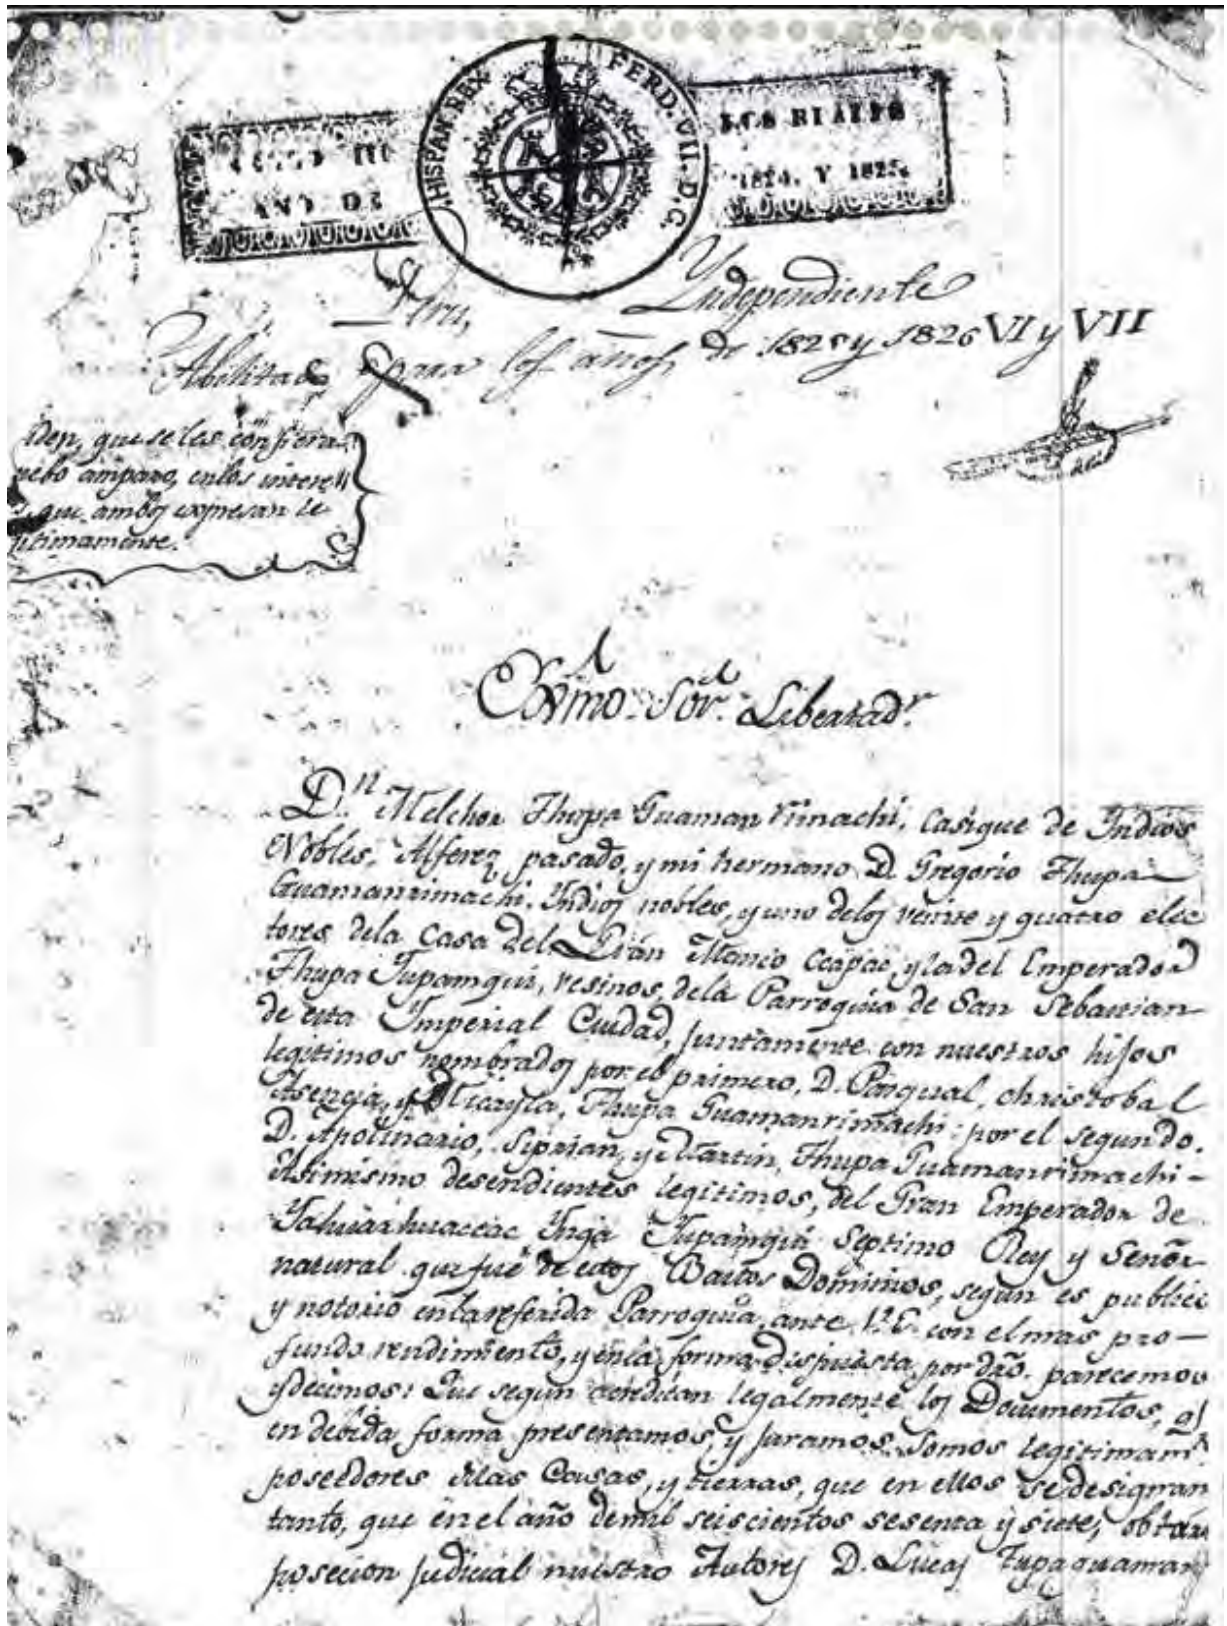 HISPAN.REX FERD.VII.D.G.
III
AÑO DE
1824. Y 1825.
Peru, Yndependiente
Abilitado para los años de 1825 y 1826 VI y VII
iden, que se les confiera
nuebo amparo, enlos intere
s, que ambos expresan le
gitimamente.
Exmo. Sor. Libertadr.
Dn. Melchor Thupa Guaman rimachi, Casique de Yndios
Nobles, Alferez pasado, y mi hermano D. Gregorio Thupa
Guamanrimachi, Yndios nobles, y uno delos veinte y quatro elec
tores dela Casa del Gran Manco Ccapac, y la del Emperador
Thupa Yupamqui, vesinos, dela Parroquia de San Sebastian
de esta Ymperial Ciudad, juntamente con nuestros hijos
legitimos nombrados por el primero, D. Pasqual, christobal
Asencia, y Micayla, Thupa Guamanrimachi: por el segundo.
D. Apolinario, Siprian, y Martin, Thupa Guamanrimachi-
Asimismo desendientes legitimos, del Gran Emperador de
Yahuarhuaccac Ynga Yupamqui Septimo Rey y Señor
natural que fué de estos Bastos Dominios, segun es publico
y notorio enla referida Parroquia, ante V.E. con el mas pro-
fundo rendimiento, y enla forma dispuesta por dro. parecemos
y decimos: Que segun acreditan legalmente los Documentos, q
en debida forma presentamos, y juramos. Somos legitimamte.
poseedores delas Casas, y tierras, que en ellos se designan
tanto, que en el año demil seiscientos sesenta y siete,
posecion judicial nuestro Autores D. Lucas Tupaguaman